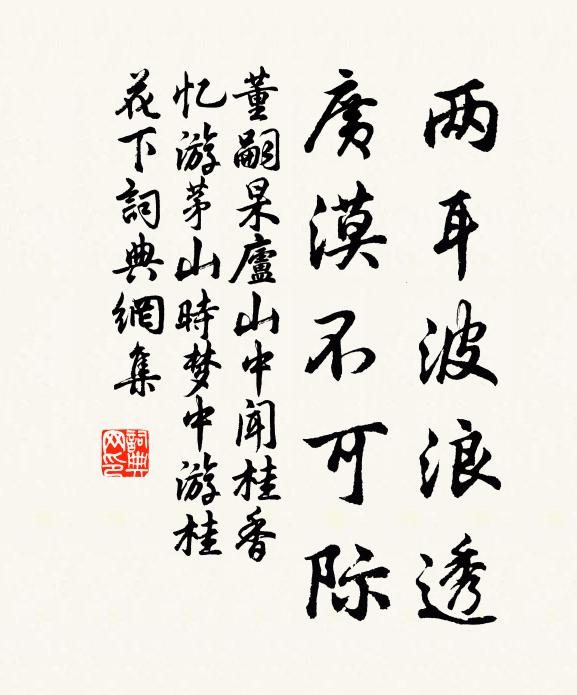 两耳波浪透
廣漠不可际
董嗣杲廬山中闻桂香
忆游茅山時梦中游桂
花下詞典網集
詞典
网印